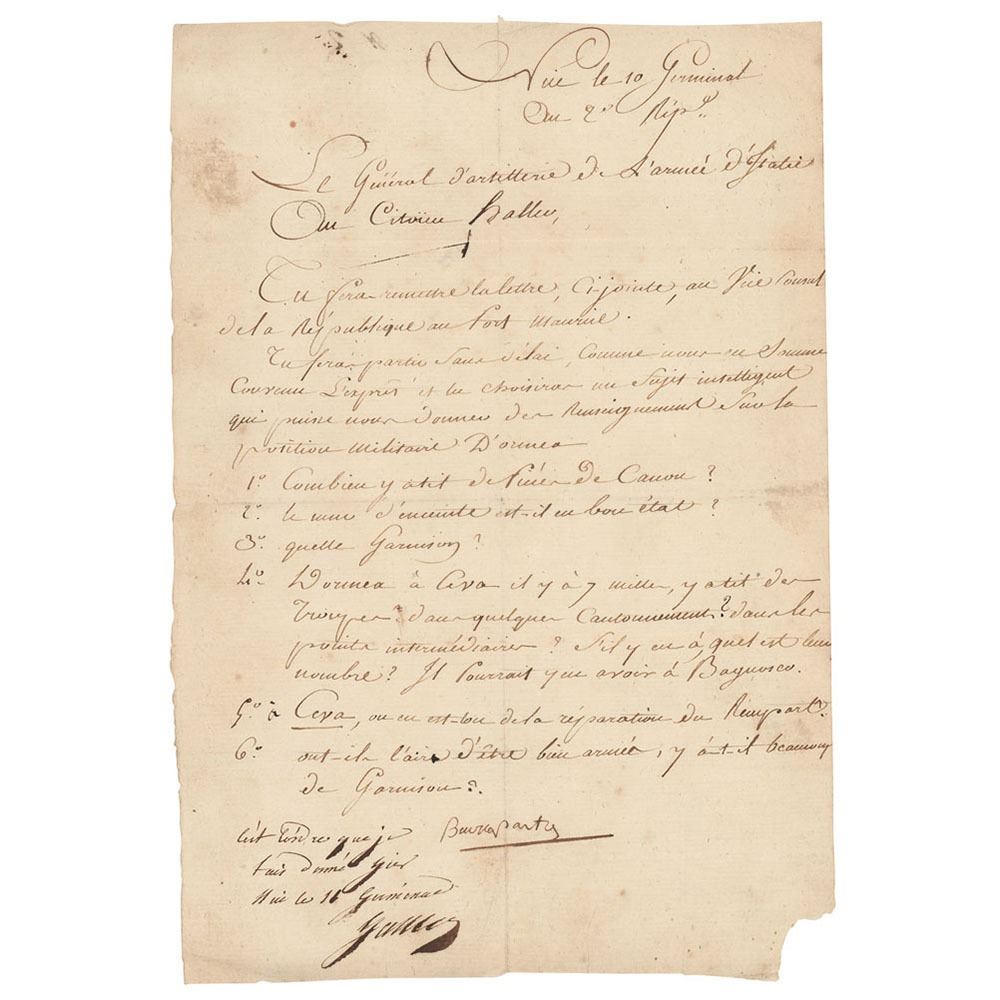 Nice le 10 Germinal
an 2e Rép.e
Le Général d'artillerie de L'armée d'Italie
Au Citoïen haller,
Tu feras remettre la lettre, Ci-jointe, au Vice Consul
de la République au Port Maurice.
Tu feras partir Sans délai, Comme nous en Sommes
Convenu L'exprès et tu choisiras un Sujet intelligent
qui puisse nous donner des Renseignement Sur la
position Militaire D'ormea
1o. Combien y atil de Pièces de Canon ?
2o. le mur d'enceinte est-il en bon état ?
3o. quelle Garnison ?
4o. D'ormea à Ceva il y à 7 milles, y atil des
Troupes ? dans quelques Cantonnement ? dans les
points intermédiaires ? S'il y en à, quel est leur
nombre ? Il Pourrait y en avoir à Bagnasco.
5o. à Ceva, ou en est-on de la réparation du Rempart ?
6o. ont-ils l'air d'être bien armée, y à-t-il beaucoup
de Garnison ?
Buonaparte
c'est l'ordre que je
t'ais donné hier
Nice le 11 Germinal